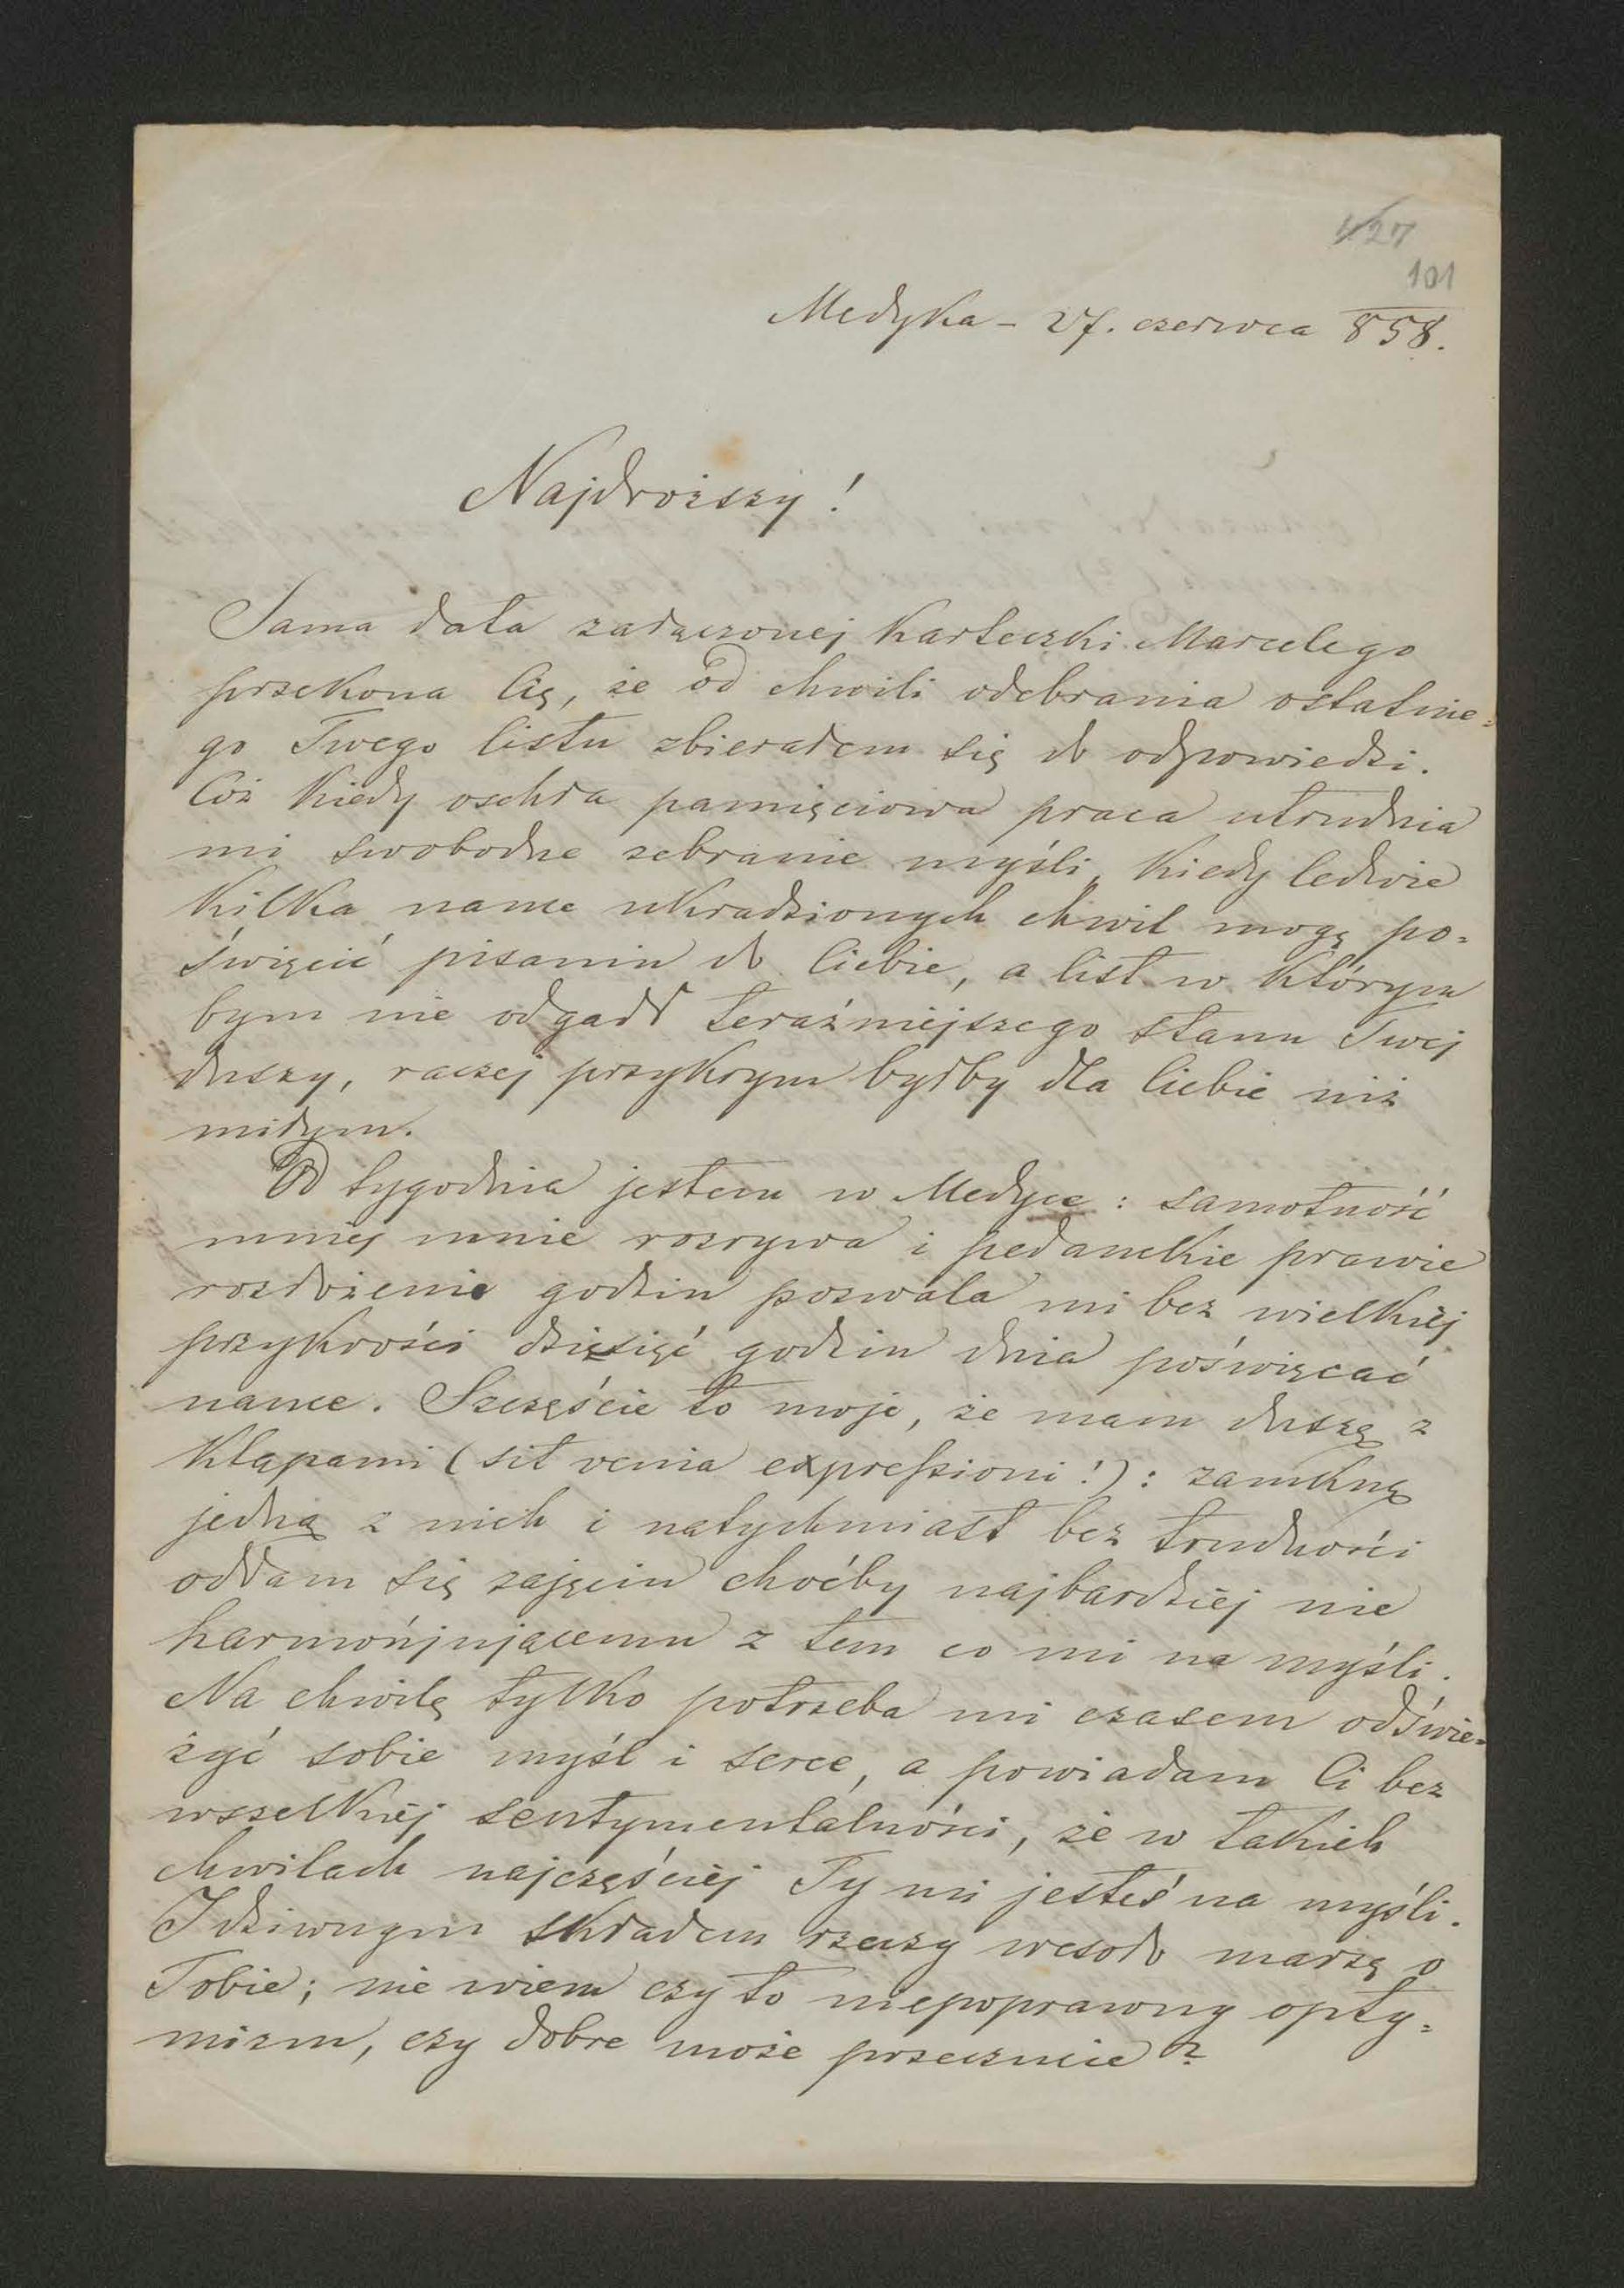 427
101
Medyka – 27. czerwca 858.
Najdroższy!
Sama data załączonej karteczki Marcelego
przekona Cię, że od chwili odebrania ostatnie=
go Twego listu zbierałem się do odpowiedzi.
Cóż kiedy oschła pamięciowa praca utrudnia
mi swobodne zebranie myśli, kiedy ledwie
kilka nauce ukradzionych chwil mogę po=
święcić pisaniu do Ciebie, a list w którym
bym nie odgadł teraźniejszego stanu Twej
duszy, raczej przykrym byłby dla Ciebie niż
miłym.
Od tygodnia jestem w Medyce: samotność
mniej mnie rozrywa i pedanckie prawie
rozłożenie godzin pozwala mi bez wielkiéj
przykrości dziesięć godzin dnia poświęcać
nauce. Szczęście to moje, że mam duszę z
klapami (sit venia expressioni!): zamknę
jedną z nich i natychmiast bez trudności
oddam się zajęciu choćby najbardziéj nie
harmonijującemu z tem co mi na myśli.
Na chwilę tylko potrzeba mi czasem odświe=
żyć sobie myśl i serce, a powiadam Ci bez
wszelkiéj sentymentalności, że w takich
chwilach najczęściéj Ty mi jesteś na myśli.
I dziwnym składem rzeczy wesoło marzę o
Tobie; nie wiem czy to niepoprawny opty=
mizm, czy dobre może przeczucie?